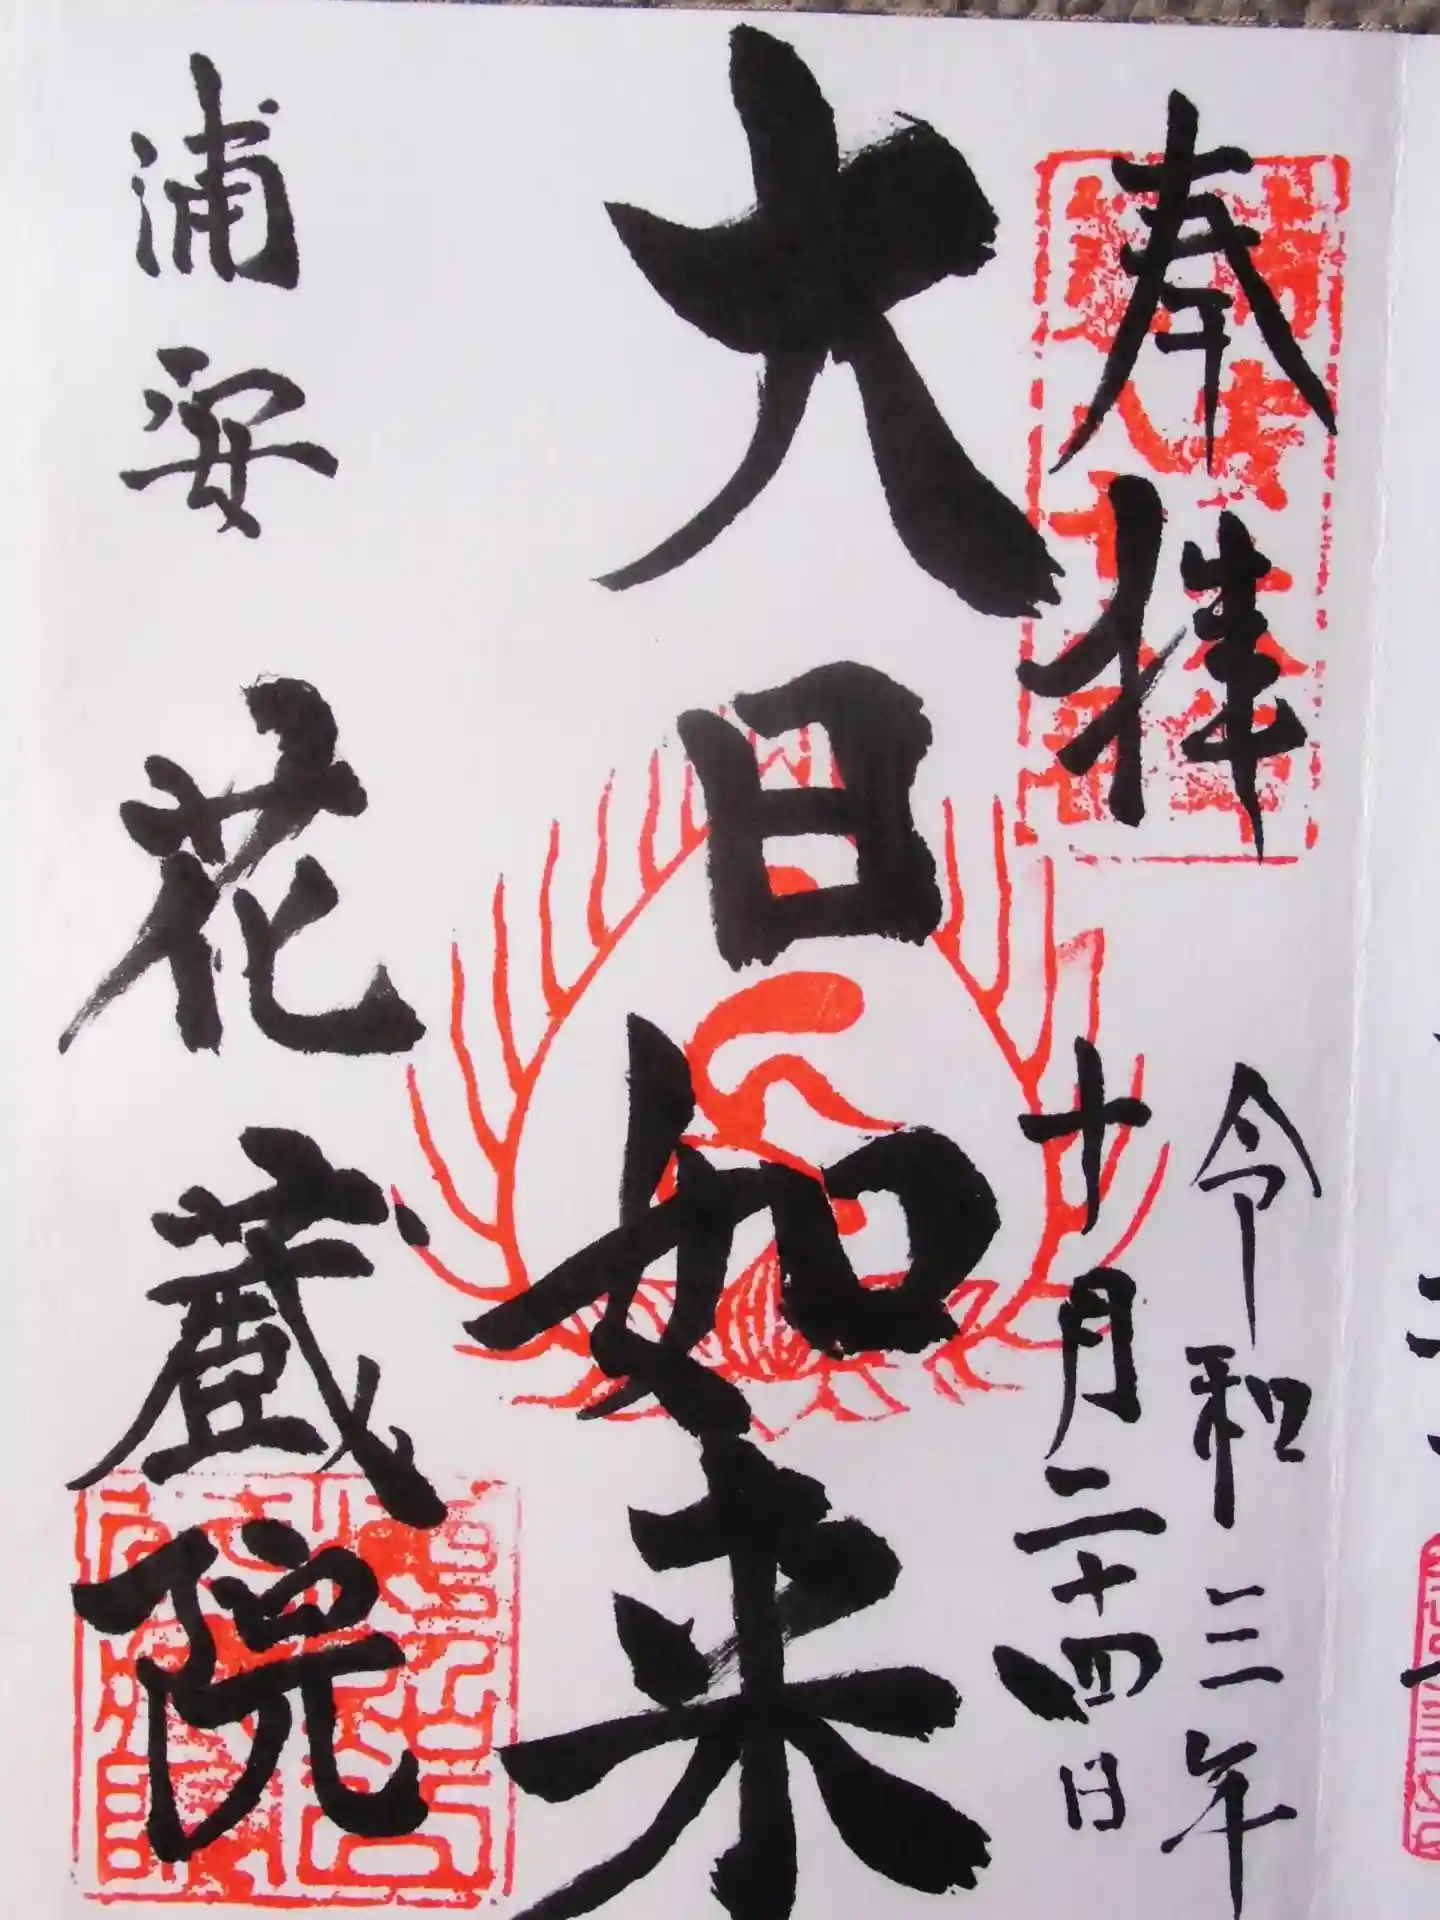 奉拝
令和三年
十月二十四日
大日如来
浦安 花蔵院